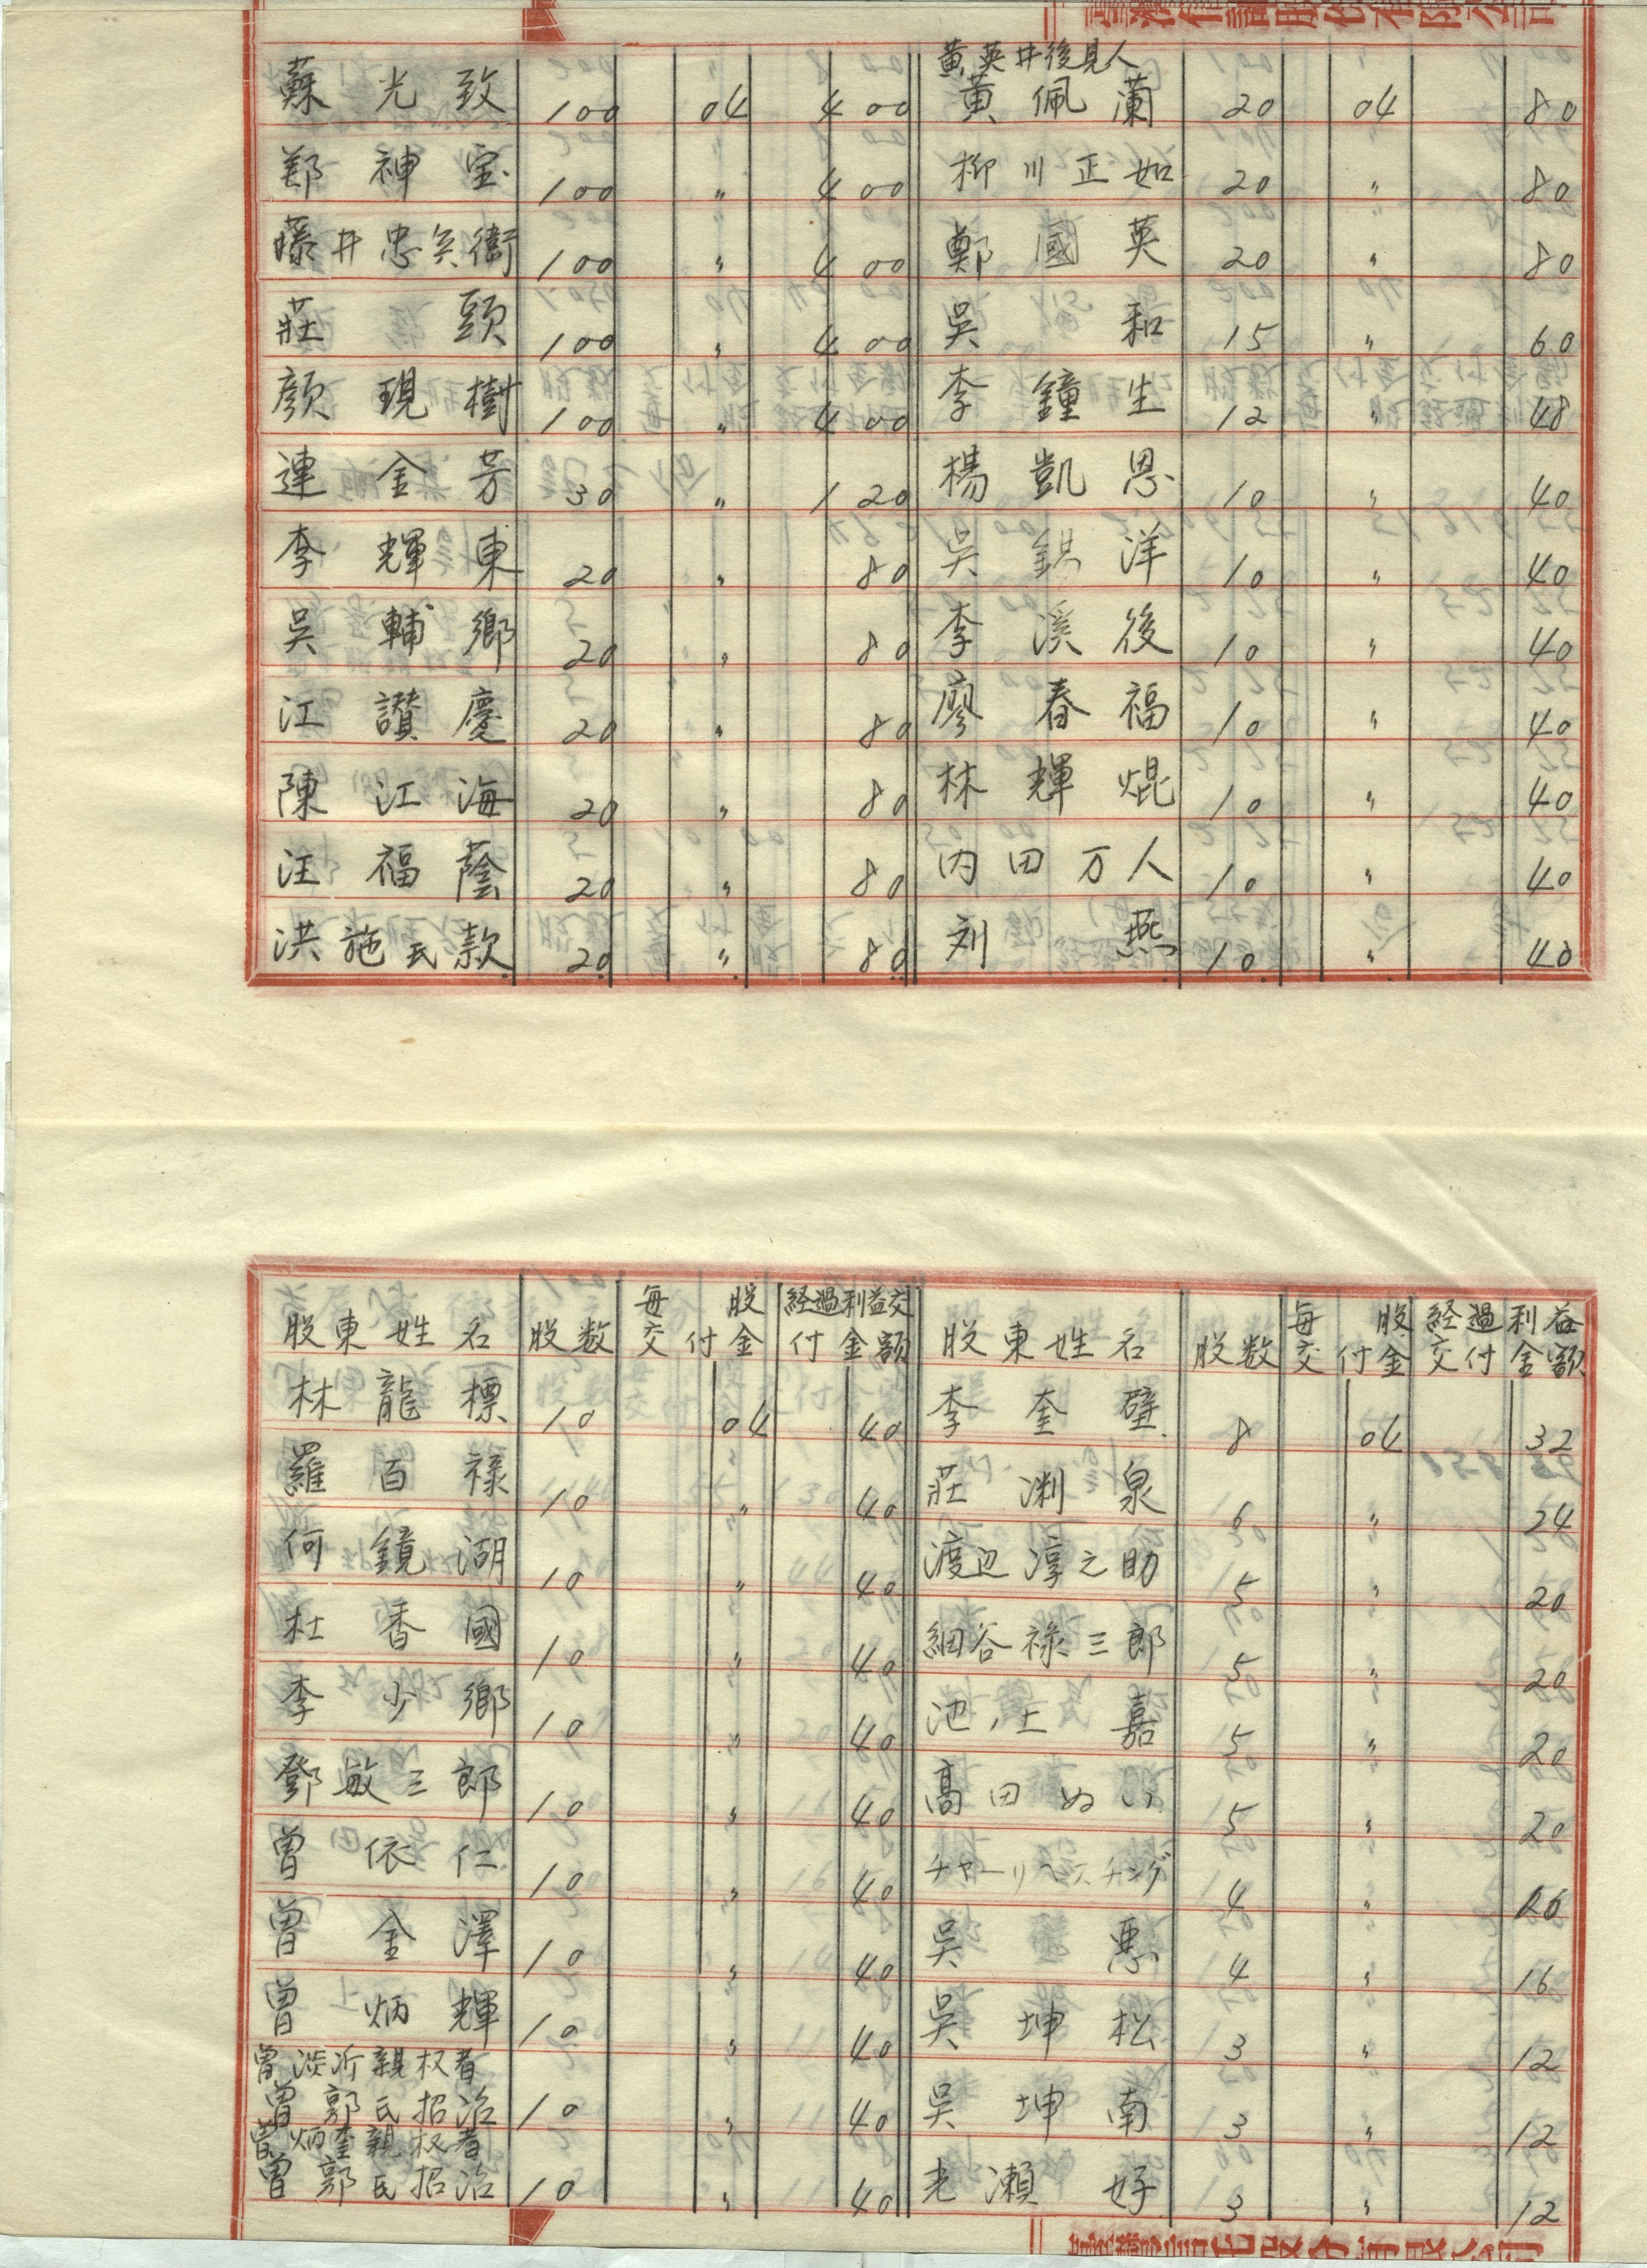 蘇光致 100 04 400
鄭神宝 100 〃 400
藤井忠兵衛 100 〃 400
莊頭 100 〃 400
顏現樹 100 〃 400
連金芳 30 〃 120
李輝東 20 〃 80
吳輔鄉 20 〃 80
江讚慶 20 〃 80
陳江海 20 〃 80
汪福蔭 20 〃 80
洪施氏款 20 〃 80
黃英井後見人
黃佩蘭 20 04 80
柳川正如 20 〃 80
鄭國英 20 〃 80
吳和 15 〃 60
李鐘生 12 〃 48
楊凱恩 10 〃 40
吳錫洋 10 〃 40
李溪後 10 〃 40
廖春福 10 〃 40
林輝焜 10 〃 40
内田万人 10 〃 40
刘燕 10 〃 40
股東姓名 股数 每股交付金 経過利益交付金額
林龍標 10 04 40
羅百祿 10 〃 40
何鏡湖 10 〃 40
杜香國 10 〃 40
李少鄉 10 〃 40
鄧敏三郎 10 〃 40
曾依仁 10 〃 40
曾金澤 10 〃 40
曾炳輝 10 〃 40
曾淡沂親权者
曾郭氏招治 10 〃 40
曾炳奎親权者
曾郭氏招治 10 〃 40
股東姓名 股数 每股交付金 経過利益交付金額
李奎璧 8 04 32
莊渊泉 6 〃 24
渡辺淳之助 5 〃 20
細谷禄三郎 5 〃 20
池ノ上嘉 5 〃 20
髙田ぬい 5 〃 20
チャーリヘスチング 4 〃 16
吳惠 4 〃 16
吳坤松 3 〃 12
吳坤南 3 〃 12
光瀨好 3 〃 12